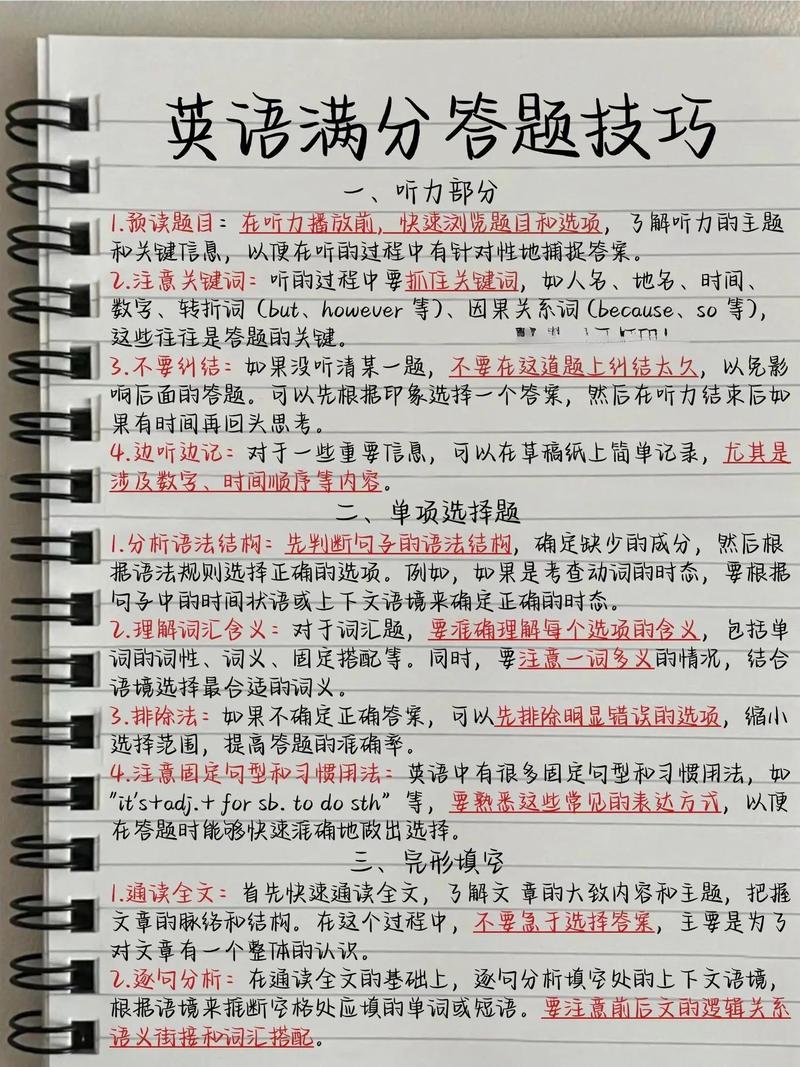 英语满分答题技巧
一、听力部分
1.预读题目：在听力播放前，快速浏览题目和选项，了解听力的主题
和关键信息，以便在听的过程中有针对性地捕捉答案。
2.注意关键词：听的过程中要抓住关键词，如人名、地名、时间、
数字、转折词（but、however 等）、因果关系词（because、so 等），
这些往往是答题的关键。
3.不要纠结：如果没听清某一题，不要在这道题上纠结太久，以免影
响后面的答题。可以先根据印象选择一个答案，然后在听力结束后如
果有时间再回头思考。
4.边听边记：对于一些重要信息，可以在草稿纸上简单记录，尤其是
涉及数字、时间顺序等内容。
二、单项选择题
1.分析语法结构：先判断句子的语法结构，确定缺少的成分，然后根
据语法规则选择正确的选项。例如，如果是考查动词的时态，要根据
句子中的时间状语或上下文语境来确定正确的时态。
2.理解词汇含义：对于词汇题，要准确理解每个选项的含义，包括单
词的词性、词义、固定搭配等。同时，要注意一词多义的情况，结合
语境选择最合适的词义。
3.排除法：如果不确定正确答案，可以先排除明显错误的选项，缩小
选择范围，提高答题的准确率。
4.注意固定句型和习惯用法：英语中有很多固定句型和习惯用法，如
"it's+adj.+ for sb. to do sth" 等，要熟悉这些常见的表达方式，以便
在答题时能够快速准确地做出选择。
三、完形填空
1.通读全文：首先快速通读全文，了解文 章的大致内容和主题，把握
文章的脉络和结构。在这个过程中，不要急于选择答案，主要是为了
对文章有一个整体的认识。
2.逐句分析：在通读全文的基础上，逐句分析填空处的上下文语境，
根据语境来推断空格处应填的单词或短语。要注意前后文的逻辑关系
语义衔接和词汇搭配。